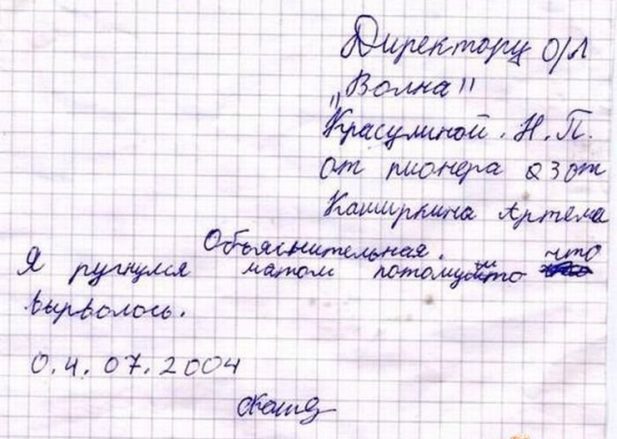 Директору О/Л
„Волна"
Красулиной. Н. П.
от пионера 23 от
Каширкина Артема
Объяснительная.
Я ругнулся матом потомушто что
вырволось.
0.4.07.2004
Каш